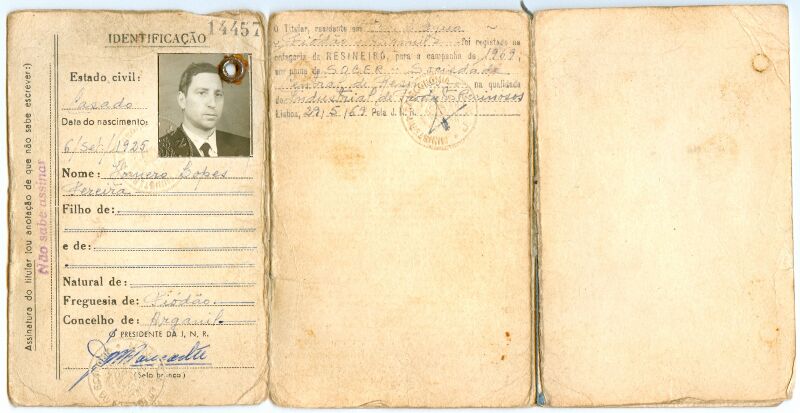 14457
IDENTIFICAÇÃO
Estado civil:
Casado
Data do nascimento:
6/Set/1925
Nome: Homero Lopes
Pereira
Filho de:
e de:
Natural de:
Freguesia de: Piódão
Concelho de: Arganil
PRESIDENTE DA J. N. R.
(Selo branco)
Assinatura do titular (ou anotação de que não sabe escrever:)
Não sabe assinar
O Titular, residente em
Piódão foi registado na
categoria de RESINEIRO, para a campanha de 1969,
por parte da SOCER - Sociedade
na qualidade
de Industrial de Resinosos
Lisboa, 29/5/69 Pela J. N. R.